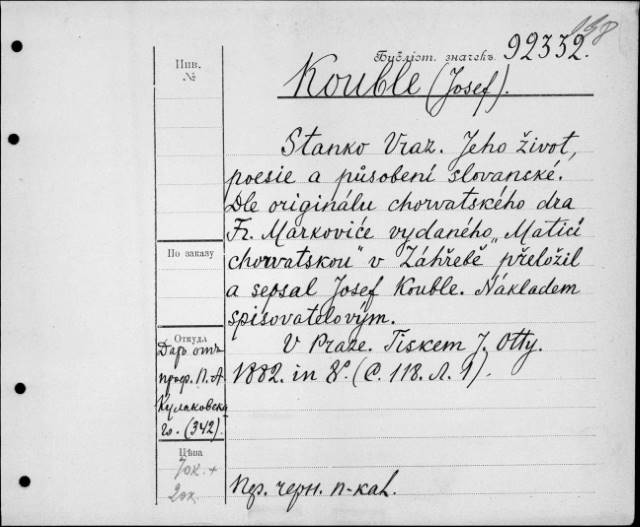 158
Инв.
№
Библіот. значекъ 92332.
Kouble (Josef).
Stanko Vraz. Jeho život,
poesie a působení slovanské.
Dle originálu chorvatského dra
Fr. Markoviće vydaného „Maticí
chorvatskou" v Záhřebě přeložil
a sepsal Josef Kouble. Nákladem
spisovatelovým.
V Praze. Tiskem J. Otty.
1882. in 8º. (С. 118. Л. 1).
По заказу
Откуда
Даръ отъ
проф. П. А.
Кулаковска
го. (342).
Цѣна
Пер. черн. п-кал.